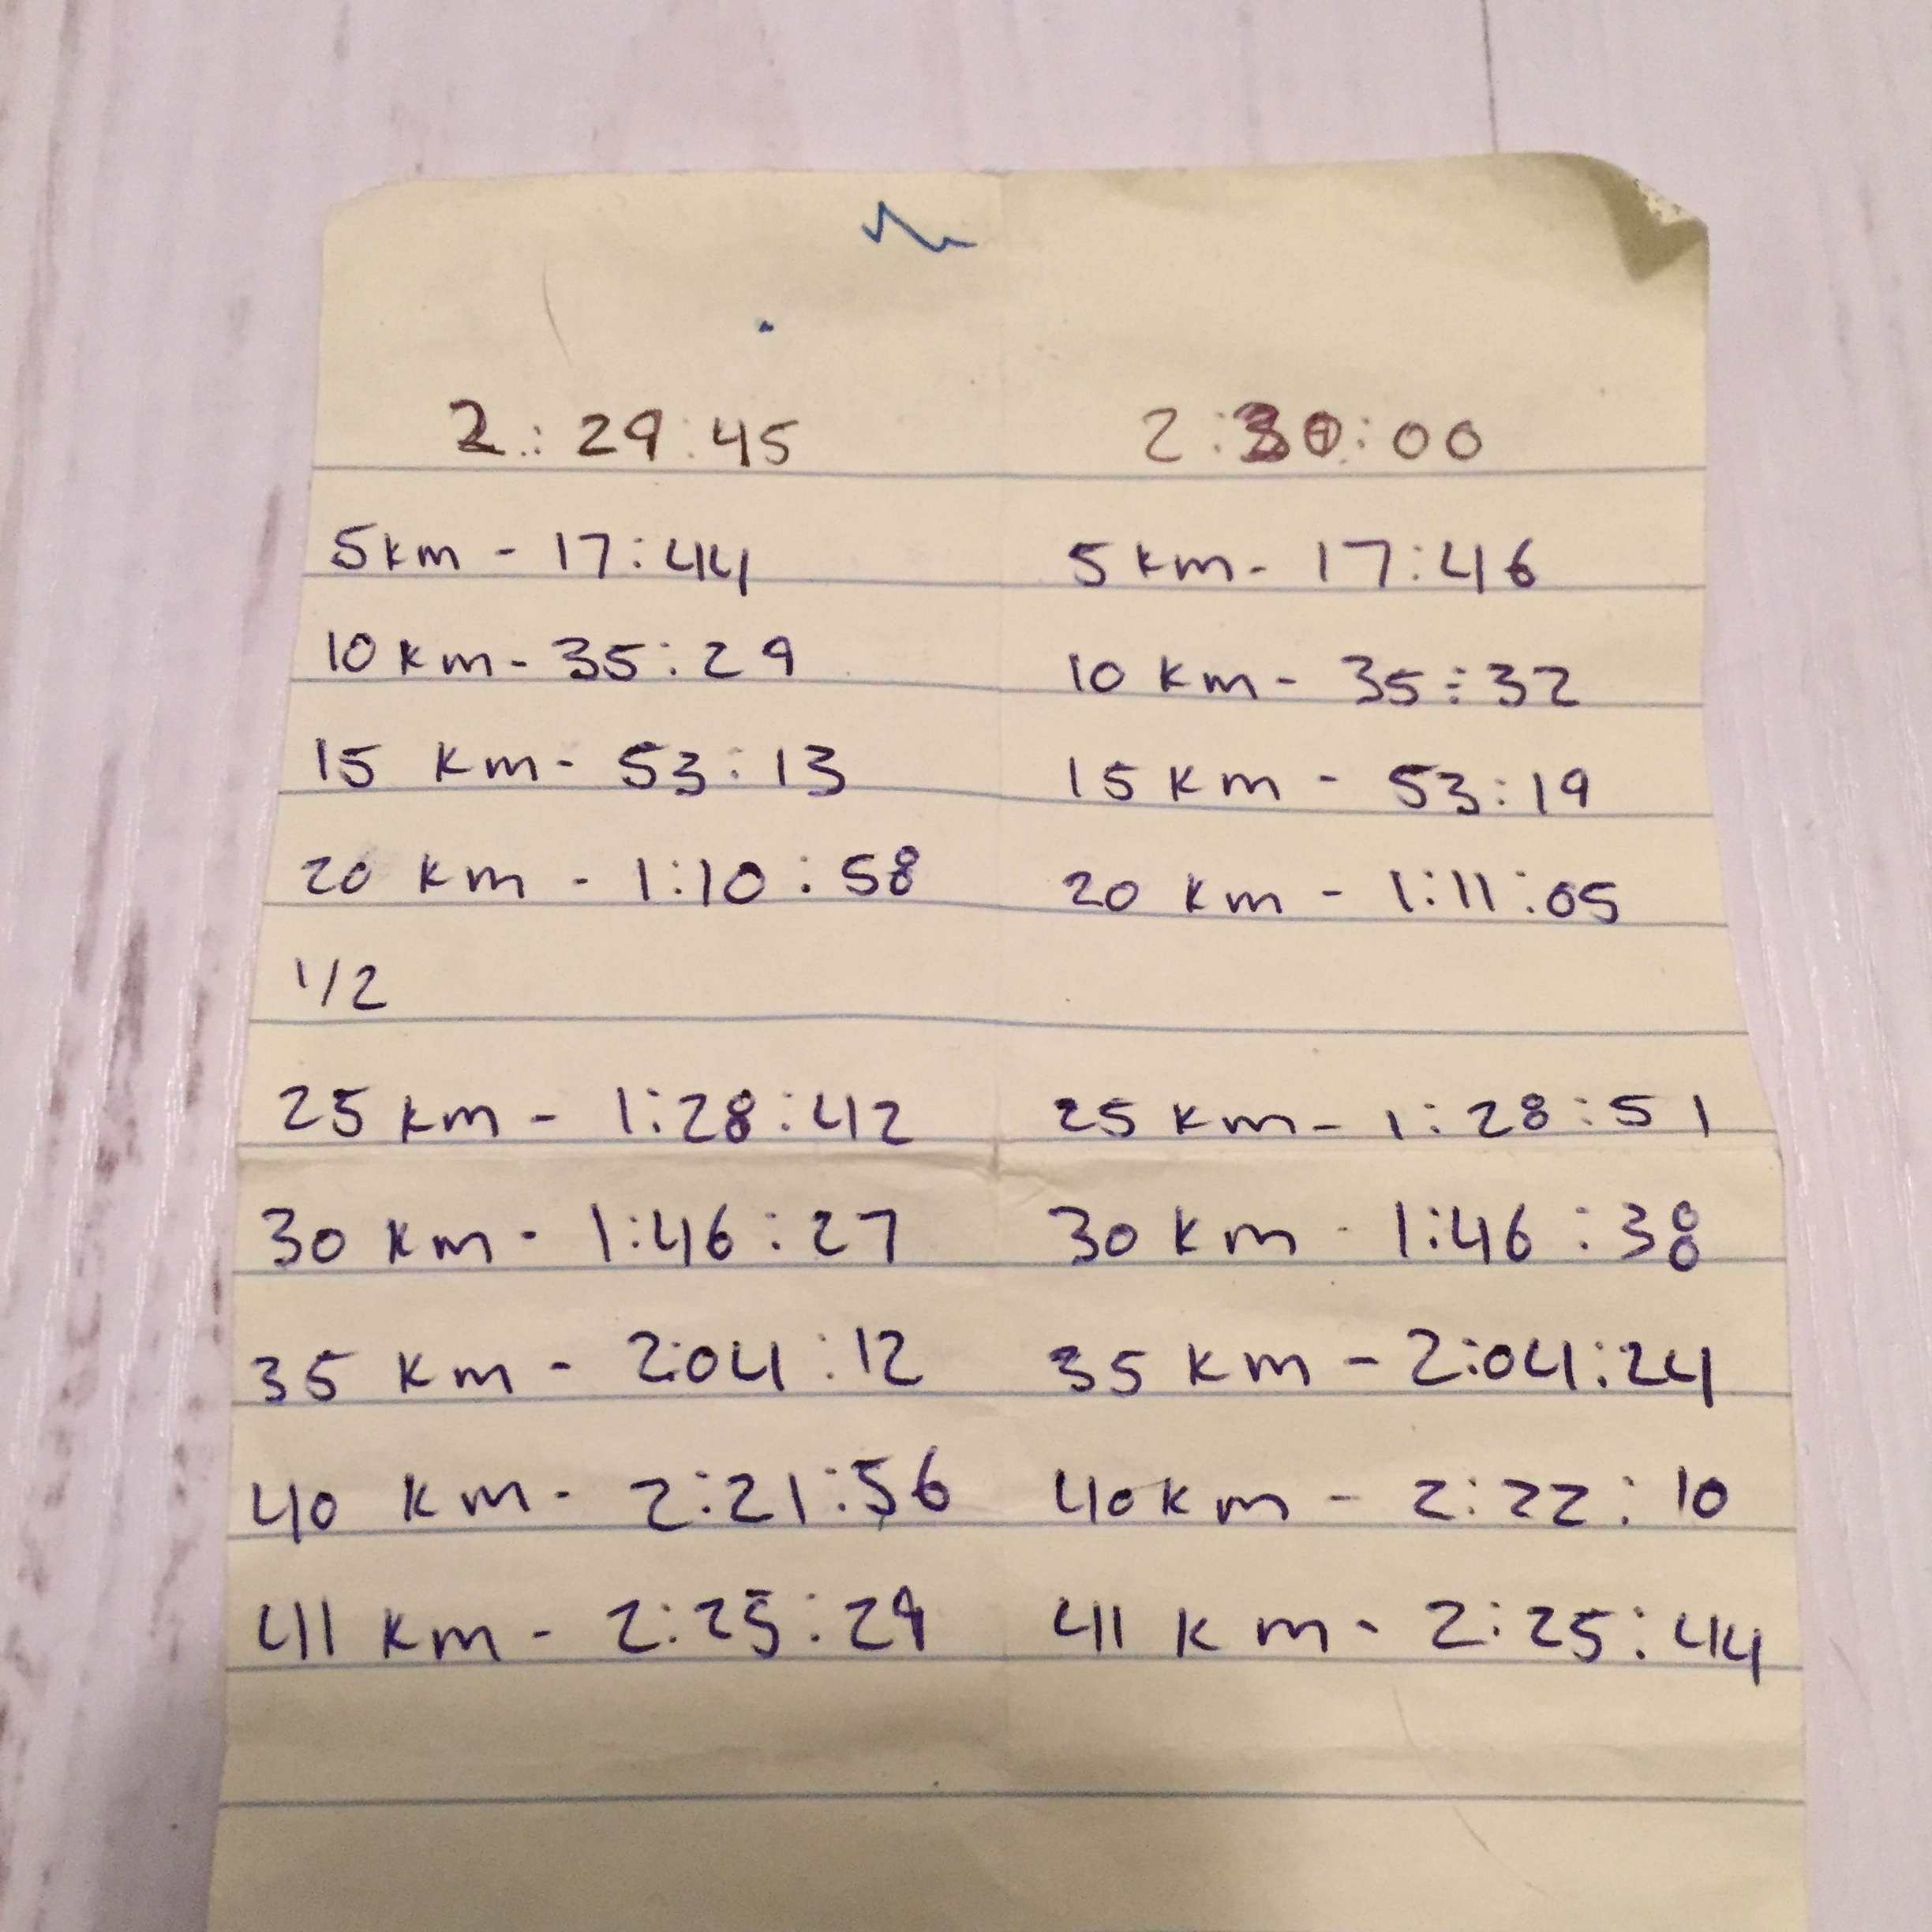 2:29:45 2:30:00
5km - 17:44 5 km - 17:46
10 km - 35:29 10 km - 35:32
15 km - 53:13 15 km - 53:19
20 km - 1:10:58 20 km - 1:11:05
1/2
25 km - 1:28:42 25 km - 1:28:51
30 km - 1:46:27 30 km - 1:46:38
35 km - 2:04:12 35 km - 2:04:24
40 km - 2:21:56 40 km - 2:22:10
41 km - 2:25:29 41 km - 2:25:44